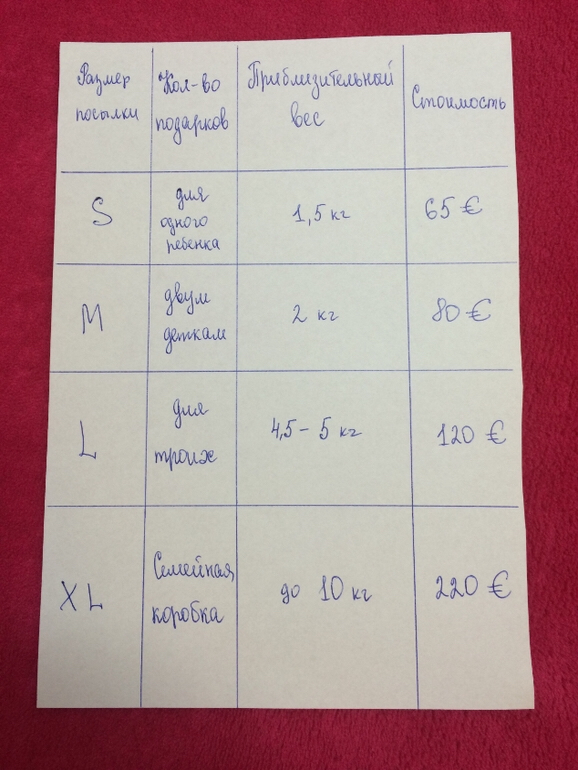 Размер
посылки
Кол-во
подарков
Приблизительный
вес
Стоимость
S
для
одного
ребенка
1,5 кг
65 €
M
двум
деткам
2 кг
80 €
L
для
троих
4,5 - 5 кг
120 €
XL
Семейная
коробка
до 10 кг
220 €